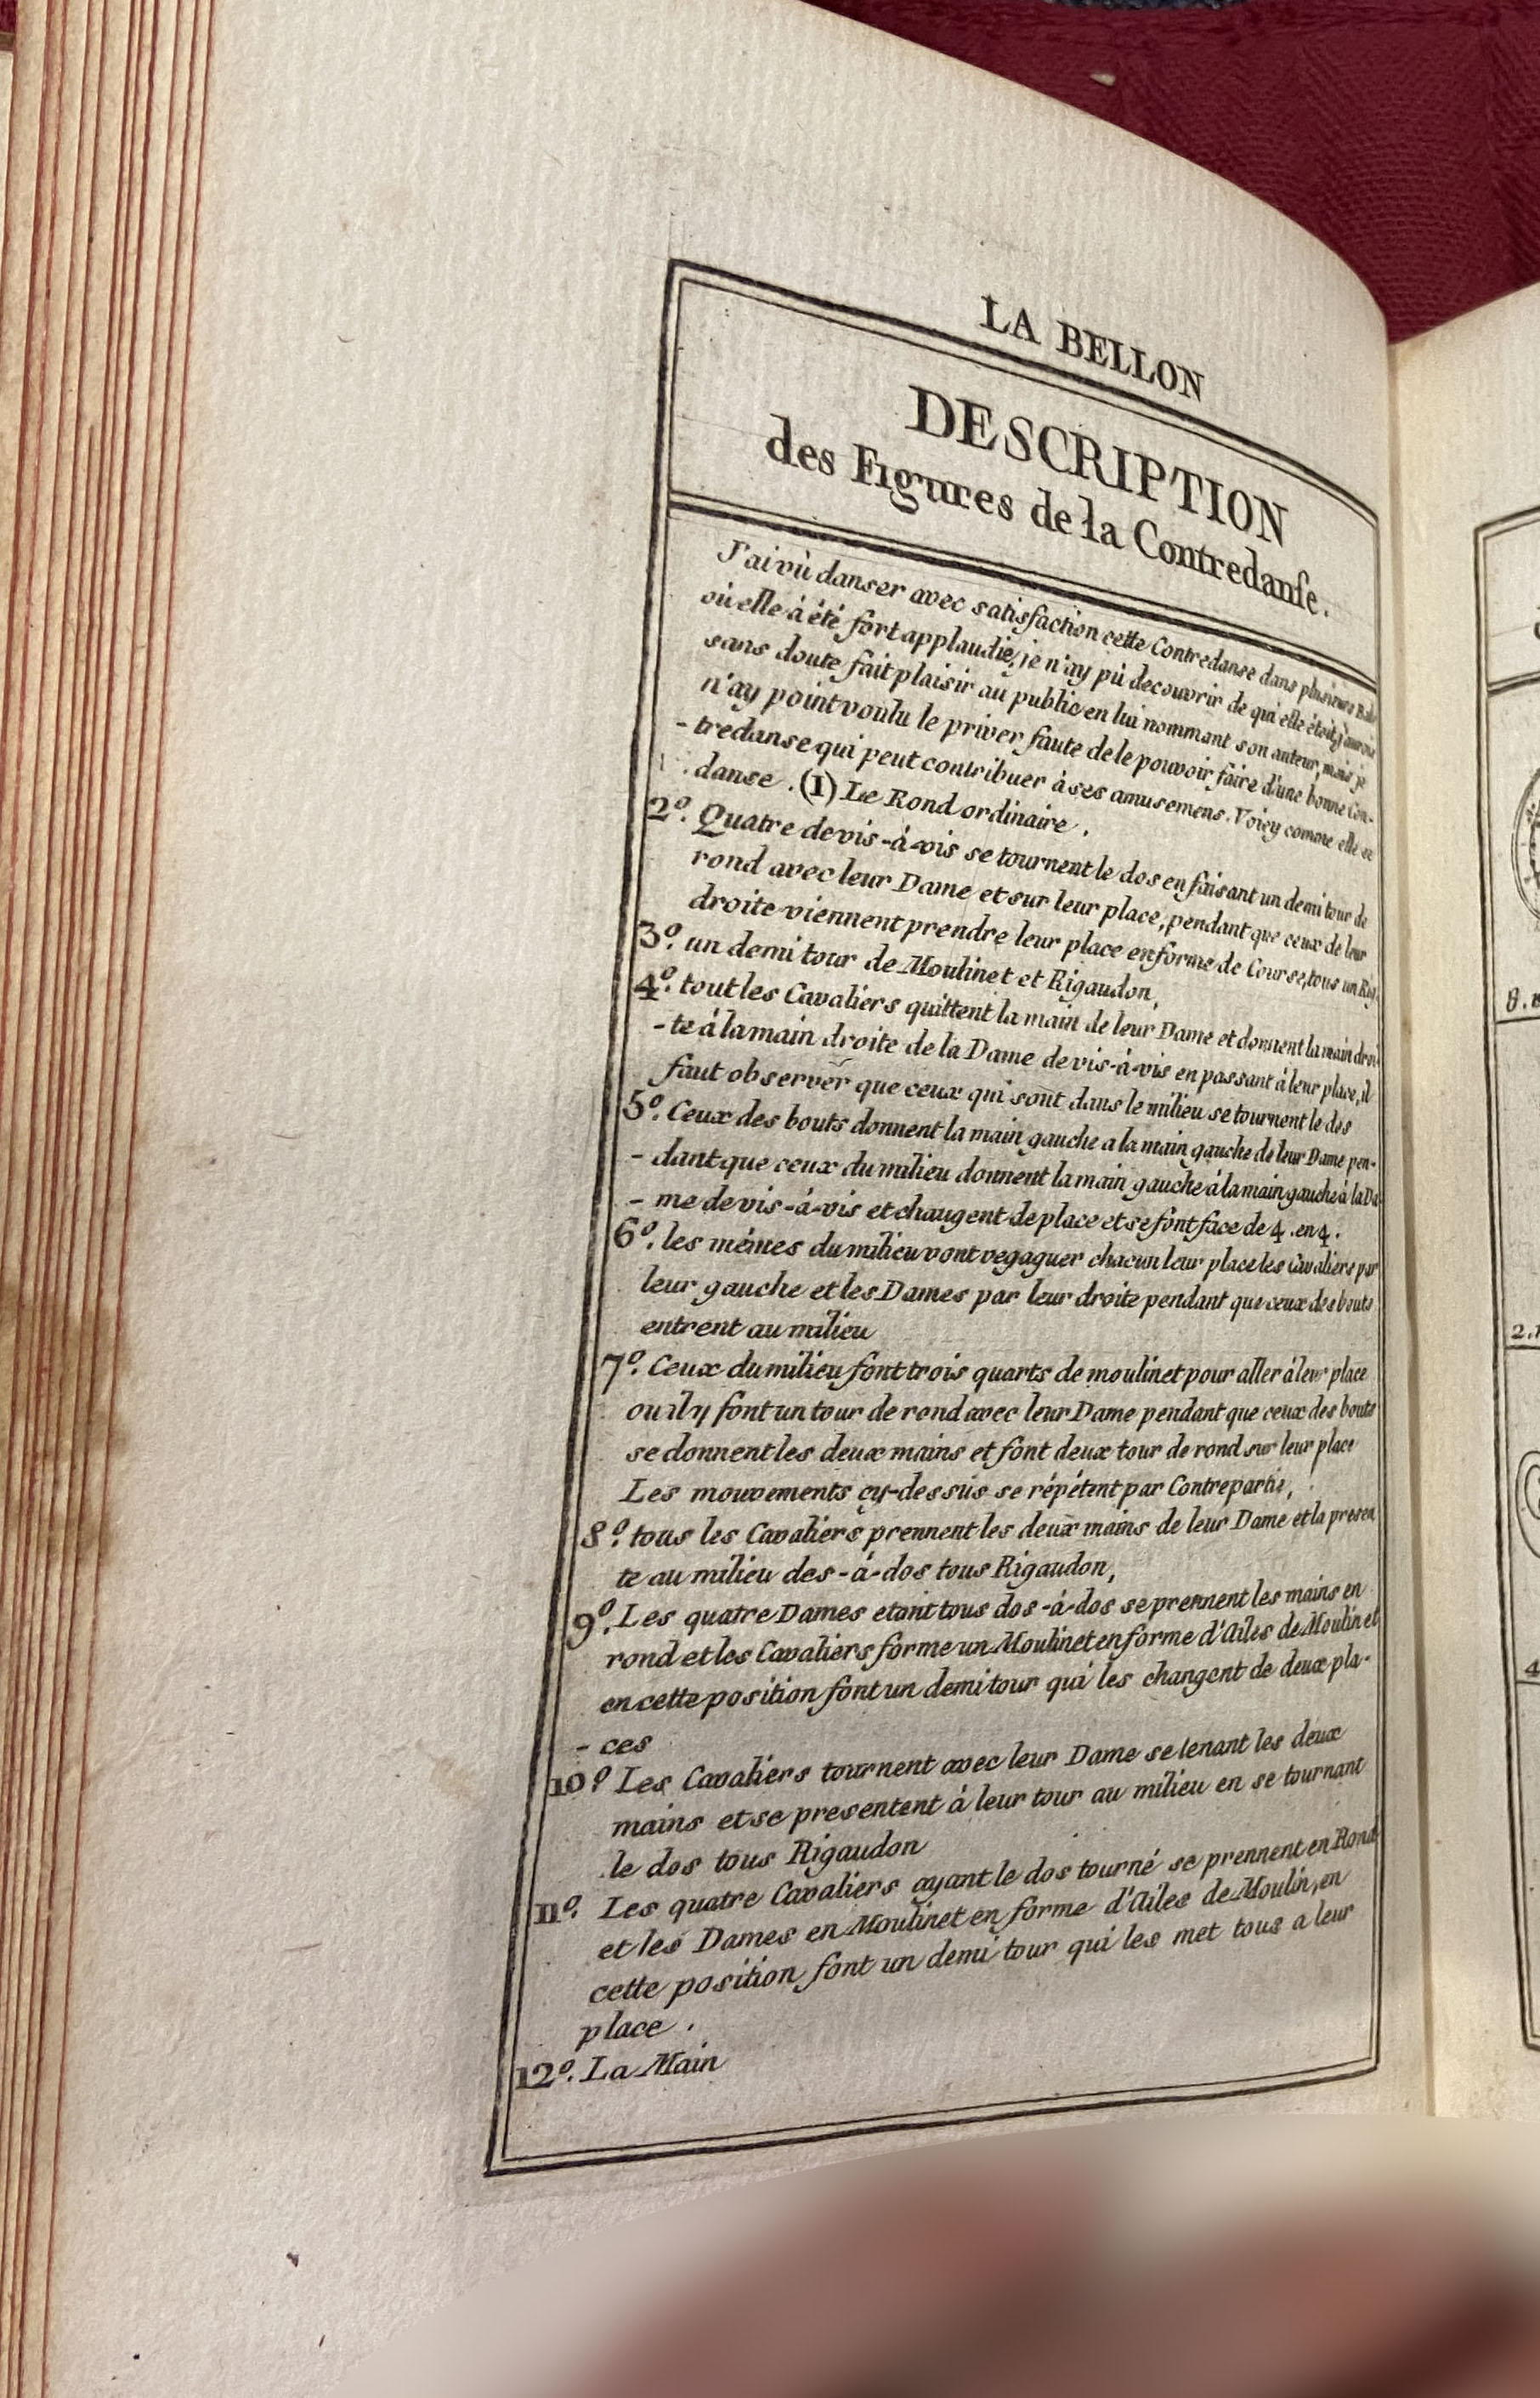 LA BELLON
DESCRIPTION
des Figures de la Contredanse.
J'ai vù danser avec satisfaction cette Contredanse dans plusieurs Bals
où elle à été fort applaudie, je n'ay pù decouvrir de qui elle étoit, j'aurois
sans doute fait plaisir au public en lui nommant son auteur, mais je
n'ay point voulu le priver faute de le pouvoir faire d'une bonne Con-
- tredanse qui peut contribuer à ses amusemens. Voicy comme elle se
danse. (1) Le Rond ordinaire.
2º. Quatre de vis-à-vis se tournent le dos en faisant un demi tour de
rond avec leur Dame et sur leur place, pendant que ceux de leur
droite viennent prendre leur place en forme de Course, tous un Rig.
3º. un demi tour de Moulinet et Rigaudon,
4º. tout les Cavaliers quittent la main de leur Dame et donnent la main droi-
- te à la main droite de la Dame de vis-à-vis en passant à leur place, il
faut observer que ceux qui sont dans le milieu se tournent le dos
5º. Ceux des bouts donnent la main gauche a la main gauche de leur Dame pen-
- dant que ceux du milieu donnent la main gauche à la main gauche à la Da
- me de vis-à-vis et changent de place et se font face de 4. en 4.
6º. les mémes du milieu vont regagner chacun leur place les Cavaliers par
leur gauche et les Dames par leur droite pendant que ceux des bouts
entrent au milieu
7º. Ceux du milieu font trois quarts de moulinet pour aller à leur place
ou il y font un tour de rond avec leur Dame pendant que ceux des bouts
se donnent les deux mains et font deux tour de rond sur leur place
Les mouvements cy-dessus se répétent par Contrepartie,
8º. tous les Cavaliers prennent les deux mains de leur Dame et la presen
te au milieu des-à-dos tous Rigaudon,
9º. Les quatre Dames etant tous dos-à-dos se prennent les mains en
rond et les Cavaliers forme un Moulinet en forme d'Ailes de Moulin et
en cette position font un demi tour qui les changent de deux pla-
- ces
10º Les Cavaliers tournent avec leur Dame se tenant les deux
mains et se presentent à leur tour au milieu en se tournant
le dos tous Rigaudon
11º. Les quatre Cavaliers ayant le dos tourné se prennent en Rond
et les Dames en Moulinet en forme d'Ailes de Moulin, en
cette position font un demi tour qui les met tous a leur
place.
12º. La Main
8.
2.
4